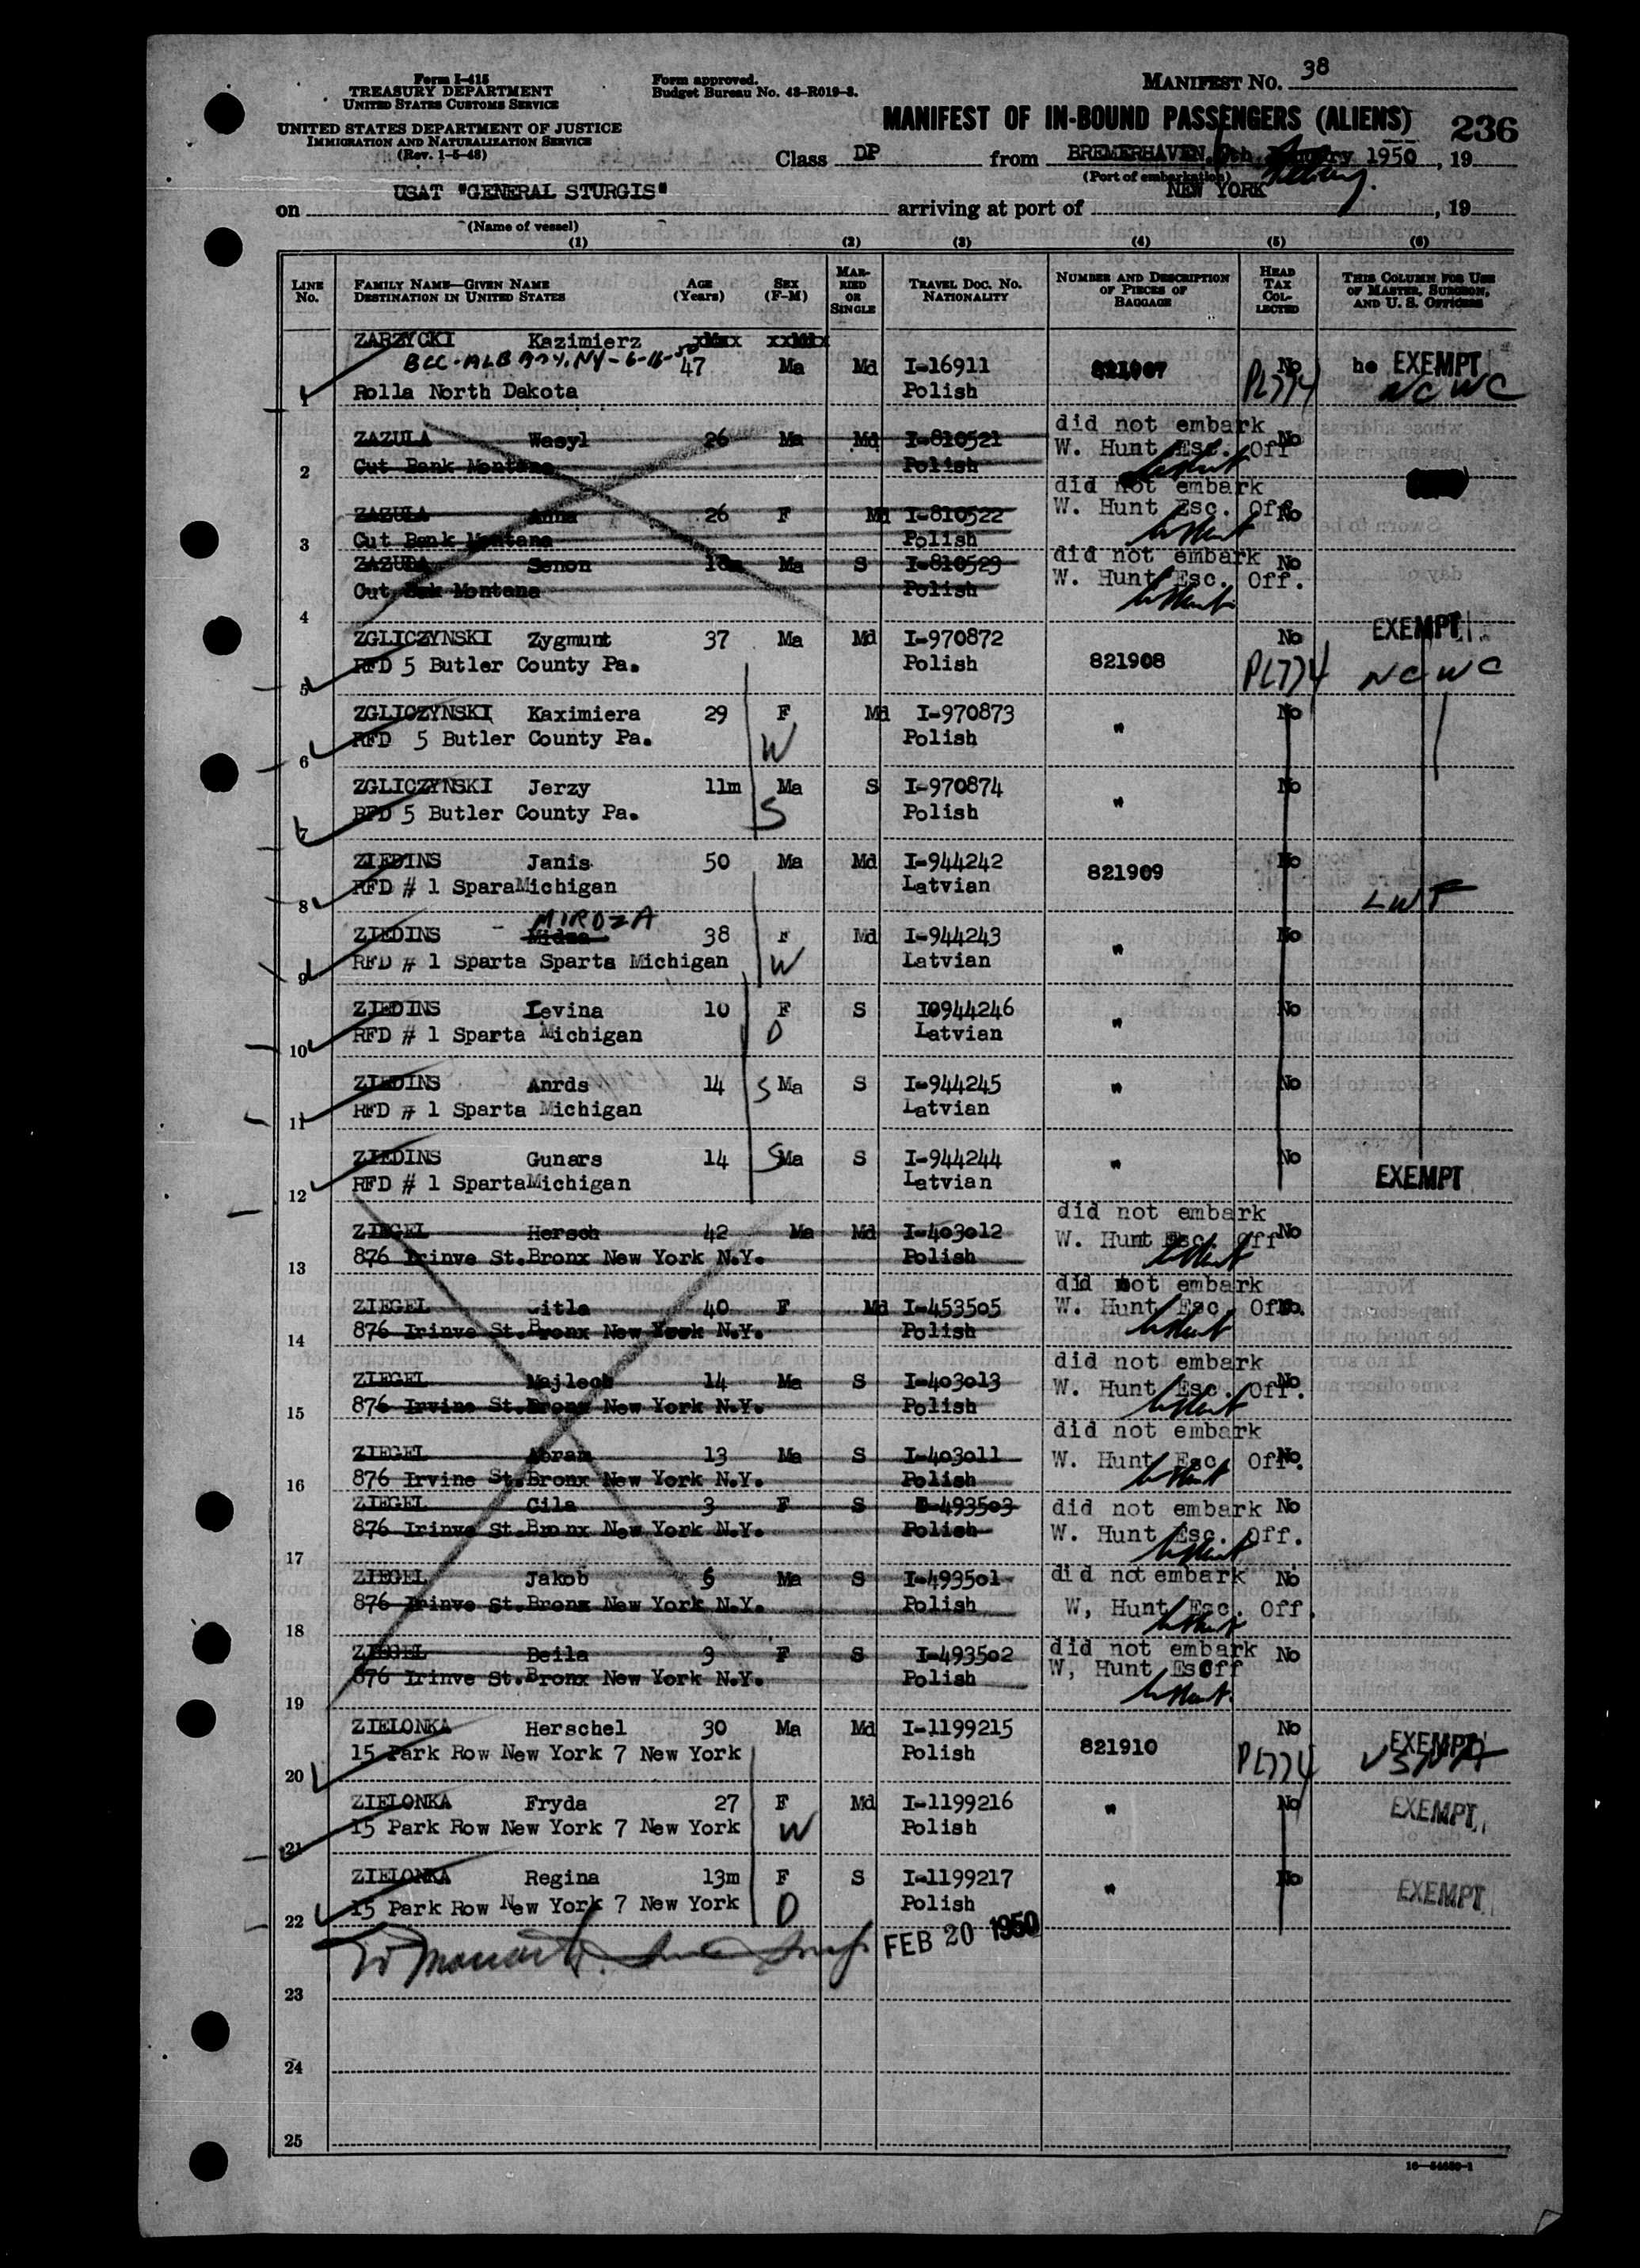 Form I-415
TREASURY DEPARTMENT
UNITED STATES CUSTOMS SERVICE
UNITED STATES DEPARTMENT OF JUSTICE
IMMIGRATION AND NATURALIZATION SERVICE
(Rev. 1-5-48)
Form approved.
Budget Bureau No. 43-R019-3.
MANIFEST NO. 38
MANIFEST OF IN-BOUND PASSENGERS (ALIENS) 236
Class DP from BREMERHAVEN, 1950, 19
(Port of embarkation)
on USAT "GENERAL STURGIS" arriving at port of NEW YORK, 19
(Name of vessel)
(1) (2) (3) (4) (5) (6)
LINE No. FAMILY NAME—GIVEN NAME DESTINATION IN UNITED STATES AGE (Years) SEX (F-M) MARRIED OR SINGLE TRAVEL DOC. NO. NATIONALITY NUMBER AND DESCRIPTION OF PIECES OF BAGGAGE HEAD TAX COLLECTED THIS COLUMN FOR USE OF MASTER, SURGEON, AND U. S. OFFICERS
ZARZYCKI Kazimierz
BCC-ALBANY, NY-6-16-50 47 Ma Md I-16911 821907 No he EXEMPT
1 Rolla North Dakota Polish PL774 NCWC
ZAZULA Wasyl 26 Ma Md I-810521 did not embark No
2 Cut Bank Montana Polish W. Hunt Esc. Off
ZAZULA Anna 26 F Md I-810522 did not embark
3 Cut Bank Montana Polish W. Hunt Esc. Off. No
ZAZULA Senon Ma S I-810523 did not embark No
4 Cut Bank Montana Polish W. Hunt Esc. Off.
ZGLICZYNSKI Zygmunt 37 Ma Md I-970872 821908 No EXEMPT
5 RFD 5 Butler County Pa. Polish PL774 NCWC
ZGLICZYNSKI Kaximiera 29 F Md I-970873 " No
6 RFD 5 Butler County Pa. W Polish
ZGLICZYNSKI Jerzy 11m Ma S I-970874 " No
7 RFD 5 Butler County Pa. S Polish
ZIEDINS Janis 50 Ma Md I-944242 821909 No
8 RFD # 1 SparaMichigan Latvian LWF
MIRDZA
ZIEDINS Midza 38 F Md I-944243 " No
9 RFD # 1 Sparta Sparta Michigan W Latvian
ZIEDINS Levina 10 F S I0944246 " No
10 RFD # 1 Sparta Michigan D Latvian
ZIEDINS Anrds 14 S Ma S I-944245 " No
11 RFD # 1 Sparta Michigan Latvian
ZIEDINS Gunars 14 S Ma S I-944244 " No
12 RFD # 1 SpartaMichigan Latvian EXEMPT
ZIEGEL Hersch 42 Ma Md I-403012 did not embark No
13 876 Irinve St.Bronx New York N.Y. Polish W. Hunt Esc. Off
ZIEGEL Gitla 40 F Md I-453505 did not embark
14 876 Irinve St.Bronx New York N.Y. Polish W. Hunt Esc. Off. No
ZIEGEL Majlech 14 Ma S I-403013 did not embark No
15 876 Irvine St.Bronx New York N.Y. Polish W. Hunt Esc. Off.
ZIEGEL Abram 13 Ma S I-403011 did not embark No
16 876 Irvine St.Bronx New York N.Y. Polish W. Hunt Esc. Off.
ZIEGEL Cila 3 F S I-493503 did not embark No
17 876 Irinve St.Bronx New York N.Y. Polish W. Hunt Esc. Off.
ZIEGEL Jakob 6 Ma S I-493501 did not embark No
18 876 Irinve St.Bronx New York N.Y. Polish W, Hunt Esc. Off.
ZIEGEL Beila 9 F S I-493502 did not embark No
19 876 Irinve St.Bronx New York N.Y. Polish W, Hunt EsOff
ZIELONKA Herschel 30 Ma Md I-1199215 821910 No EXEMPT
20 15 Park Row New York 7 New York Polish PL774 USNA
ZIELONKA Fryda 27 F Md I-1199216 " No EXEMPT
21 15 Park Row New York 7 New York W Polish
ZIELONKA Regina 13m F S I-1199217 " No EXEMPT
22 15 Park Row New York 7 New York D Polish
FEB 20 1950
23
24
25